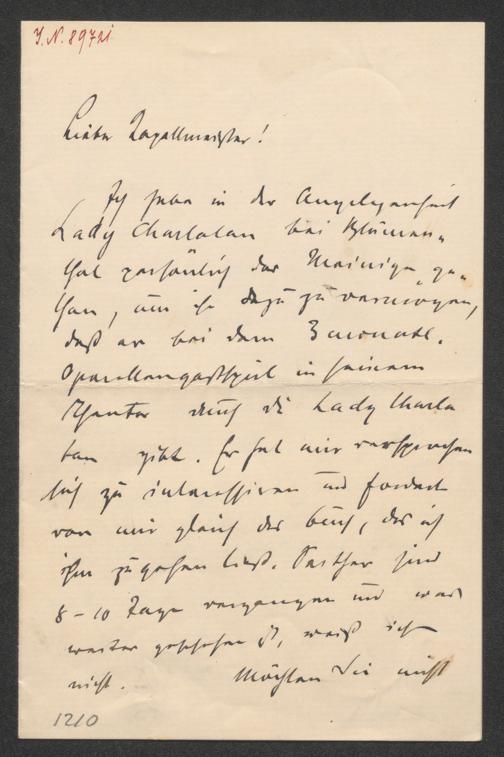 J.N. 89721
Lieber Kapellmeister!
Ich habe in der Angelegenheit
Lady Charlatan bei Blumen„
thal persönlich das Meinige ge„
than, um ihn dazu zu vermögen,
daß er bei dem 3 monatl.
Operettengastspiel in seinem
Theater auch die Lady Charla
tan gibt. Er hat mir versprochen
sich zu interessiren und fordert
von mir gleich das Buch, das ich
ihm zugehen ließ. Seither sind
8–10 Tage vergangen und was
weiter geschehen ist, weiß ich
nicht. Möchten Sie nicht
1210